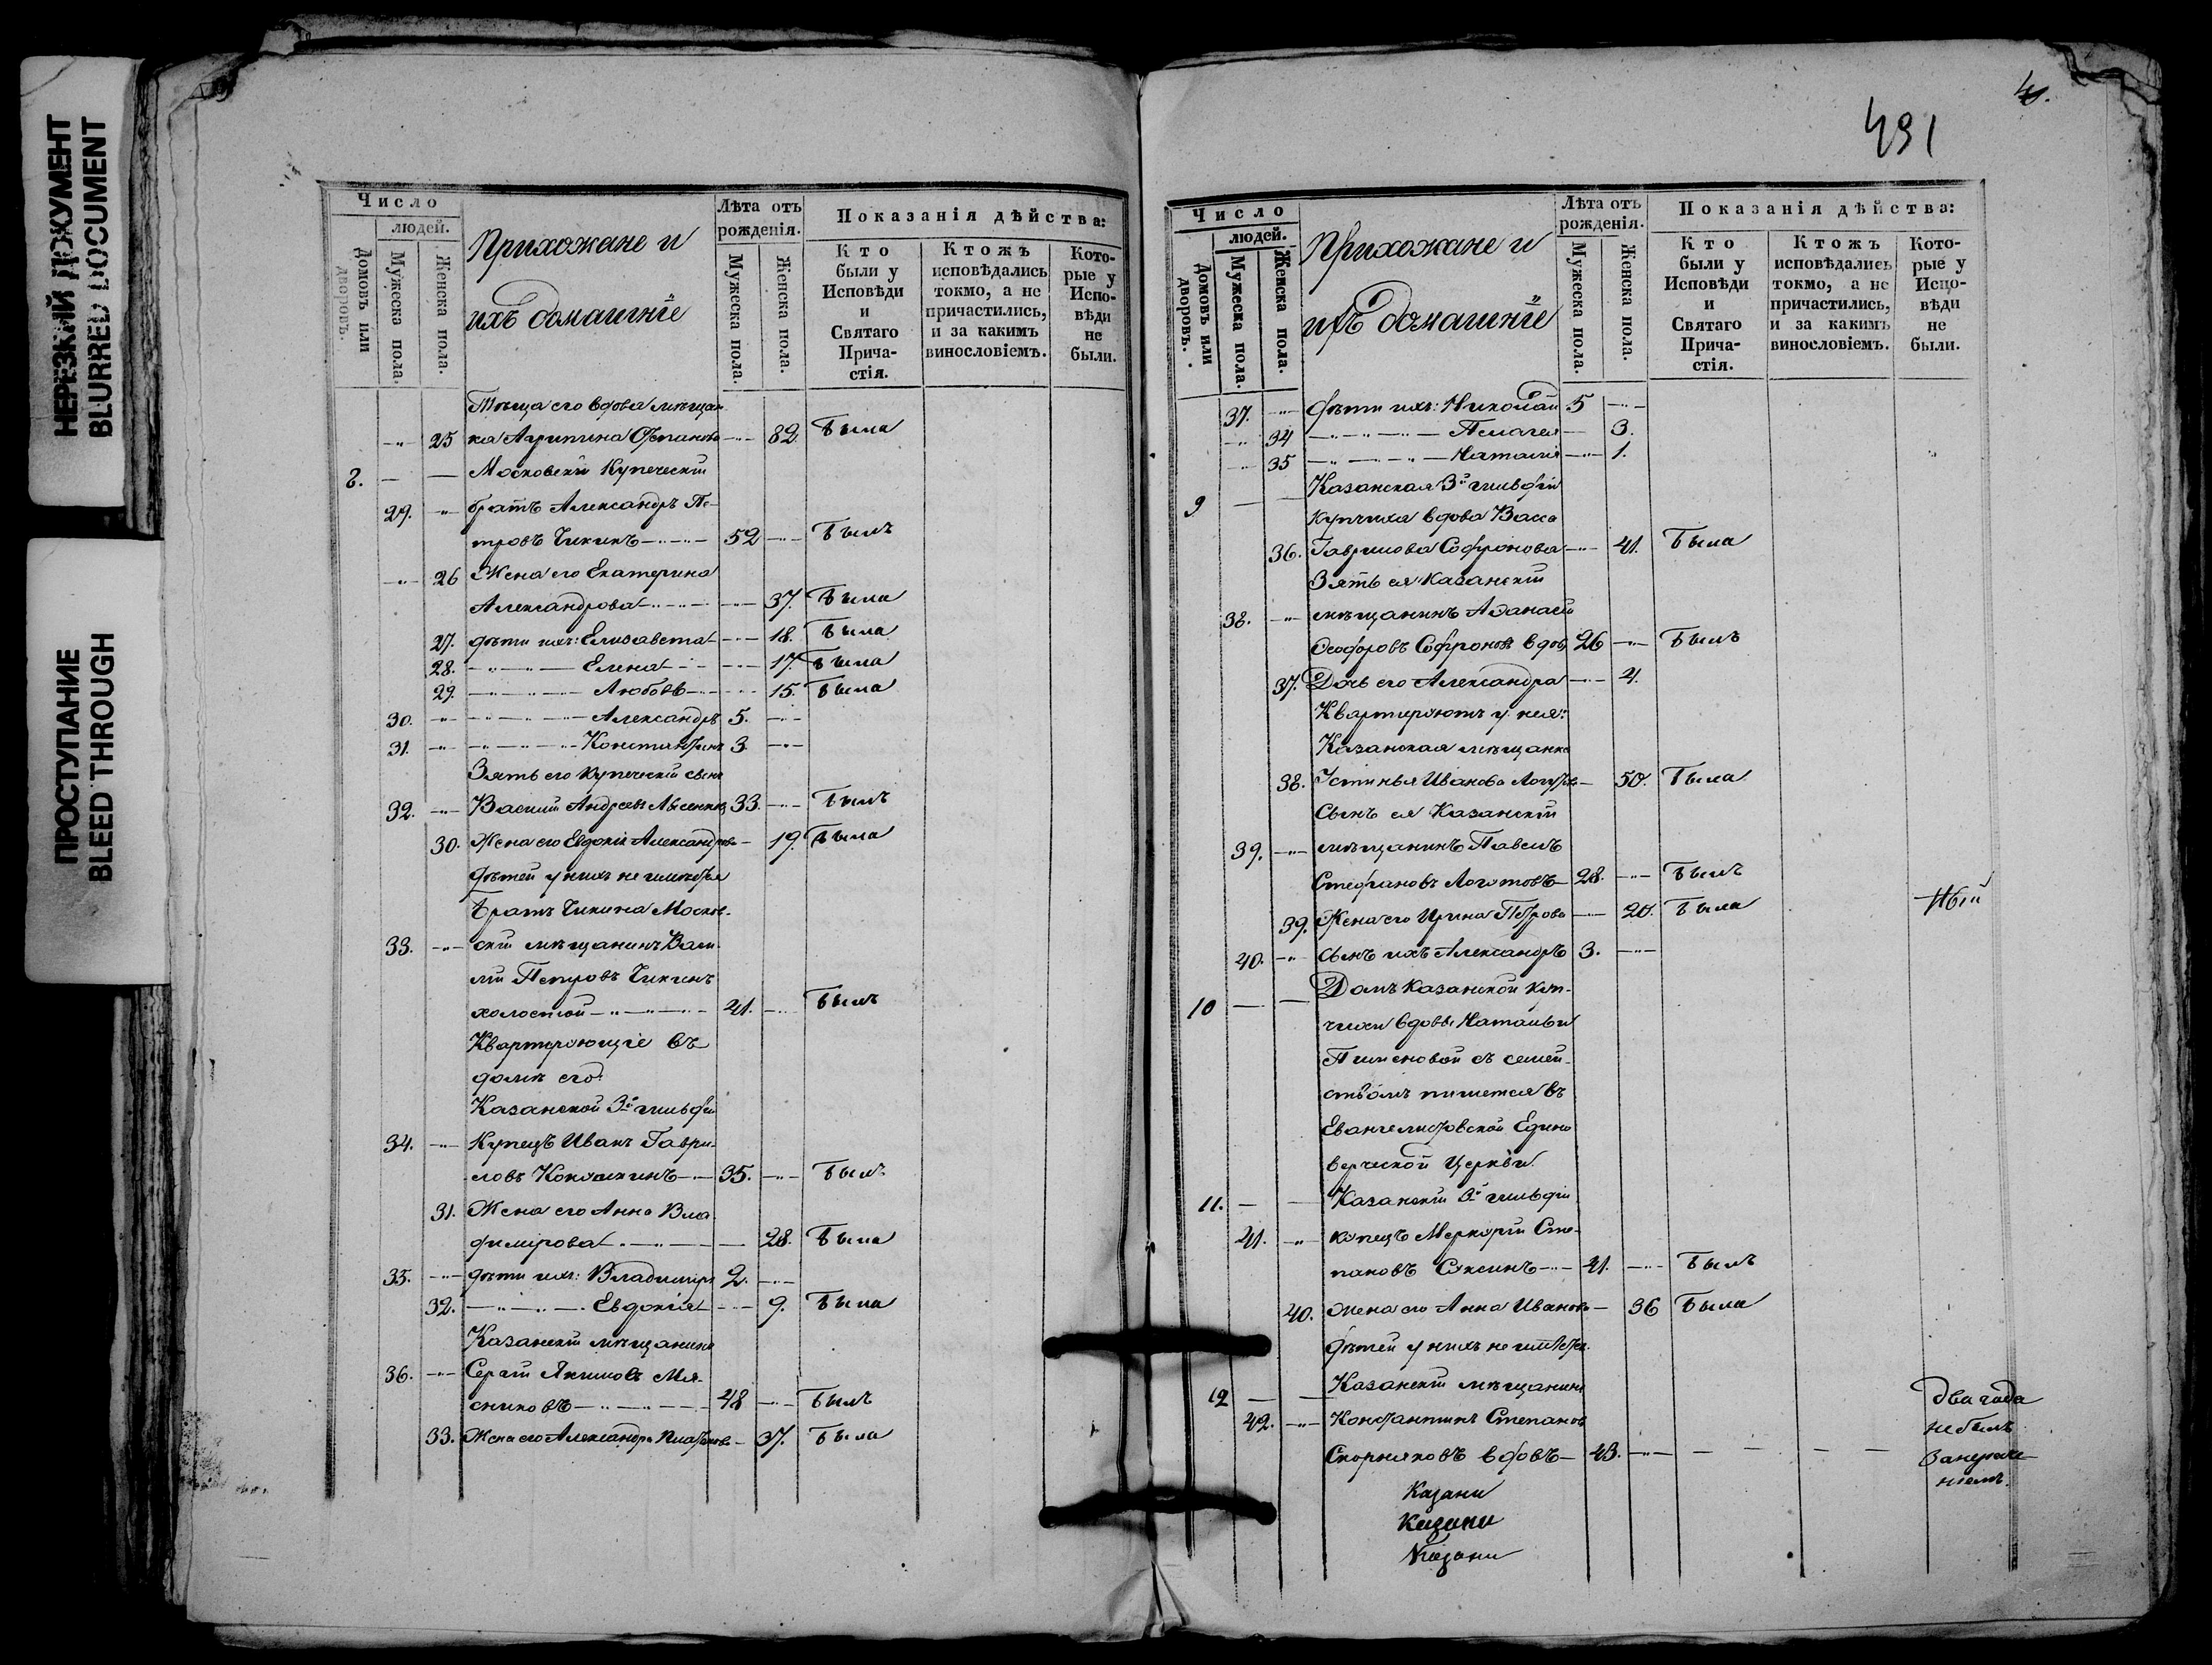 НЕРЕЗКИЙ ДОКУМЕНТ
BLURRED DOCUMENT
ПРОСТУПАНИЕ
BLEED THROUGH
Число
людей.
Домовъ или дворовъ.
Мужеска пола.
Женска пола.
Прихожане и
ихъ домашніе
Лѣта отъ рожденія.
Мужеска пола.
Женска пола.
Показанія дѣйства:
Кто были у Исповѣди и Святаго Прича-стія.
Ктожъ исповѣдались токмо, а не причастились, и за какимъ винословіемъ.
Кото-рые у Испо-вѣди не были.
Теща его вдова мѣщан
25 ка Агрипина Степанова 82 Была
8. Московскій Купеческій
29. братъ Александръ Пе-
тровъ Чикинъ 52 Былъ
26 Жена его Екатерина
Александрова 37. Была
27. дѣти ихъ: Елизавета 18. Была
28. Елена 17. Была
29. Любовь 15. Была
30. Александръ 5.
31. Константинъ 3.
Зять его купеческій сынъ
32. Василій Андреевъ 33. Былъ
30. Жена его Евдокія Александрова 19. Была
дѣтей у нихъ не имѣется
Братъ Чикина Москов-
33. скій мѣщанинъ Васи
лій Петровъ Чикинъ
холостой 41. Былъ
Квартирующіе въ
домѣ его:
Казанской 3й гильдіи
34. Купецъ Иванъ Гаври-
ловъ 35. Былъ
31. Жена его Анна Вла
димірова 28. Была
35. дѣти ихъ: Владиміръ 2.
32. Евдокія 9. Была
Казанскій мѣщанинъ
36. Сергій Якимовъ Мя-
сниковъ 48 Былъ
33. Жена его Александра Платонова 37. Была
4.
491
Число
людей.
Домовъ или дворовъ.
Мужеска пола.
Женска пола.
Прихожане и
ихъ домашніе
Лѣта отъ рожденія.
Мужеска пола.
Женска пола.
Показанія дѣйства:
Кто были у Исповѣди и Святаго Прича-стія.
Ктожъ исповѣдались токмо, а не причастились, и за какимъ винословіемъ.
Кото-рые у Испо-вѣди не были.
37. дѣти ихъ: Николай 5
34 Пелагея 3.
35 Наталія 1.
9 Казанская 3й гильдіи
купчиха вдова Васса
36. Гаврилова Софронова 41. Была
Зять ея Казанскій
38. мѣщанинъ Аѳанасій
Ѳеодоровъ Софроновъ вдовъ 26 Былъ
37. Дочь его Александра 4.
Квартируютъ у нея:
Казанская мѣщанка
38. Устинья Иванова 50. Была
Сынъ ея Казанскій
39. мѣщанинъ Павелъ
Стефановъ Логотовъ 28. Былъ
39. Жена его Ирина Петрова 20. Была
40. Сынъ ихъ Александръ 3.
10 Домъ Казанской куп-
чихи вдовы Натальи
Пименовой съ семей-
ствомъ пишется въ
Евангелистовской Едино
верческой Церкви.
11. Казанскій 3й гильдіи
41. купецъ Меркурій Сте-
пановъ 41. Былъ
40. Жена его Анна Иванова 36 Была
Дѣтей у нихъ не имѣется.
12 Казанскій мѣщанинъ
42. Константинъ Степановъ
Скорняковъ вдовъ 43. два года
небылъ
Казани
Казани
Казани